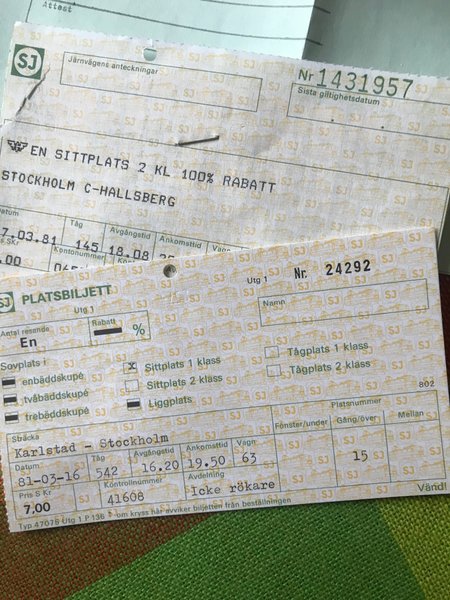 Attest
SJ
Järnvägens anteckningar
Nr 1431957
Sista giltighetsdatum
EN SITTPLATS 2 KL 100% RABATT
STOCKHOLM C-HALLSBERG
Datum Tåg Avgångstid Ankomsttid Vagn
7.03.81 145 18.08
.00
SJ PLATSBILJETT
Utg 1
Utg 1 Nr. 24292
Antal resande Rabatt Namn
En %
Sovplats i
enbäddskupé x Sittplats 1 klass Tågplats 1 klass
tvåbäddskupé Sittplats 2 klass Tågplats 2 klass
trebäddskupé Liggplats
802
Sträcka Platsnummer
Karlstad - Stockholm Fönster/under Gång/över Mellan
Datum Tåg Avgångstid Ankomsttid Vagn
81-03-16 542 16.20 19.50 63 15
Pris S Kr Kontrollnummer Avdelning
7.00 41608 Icke rökare
Vänd!
Typ 47076 Utg 1 P 136 * om kryss här avviker biljetten från beställningen